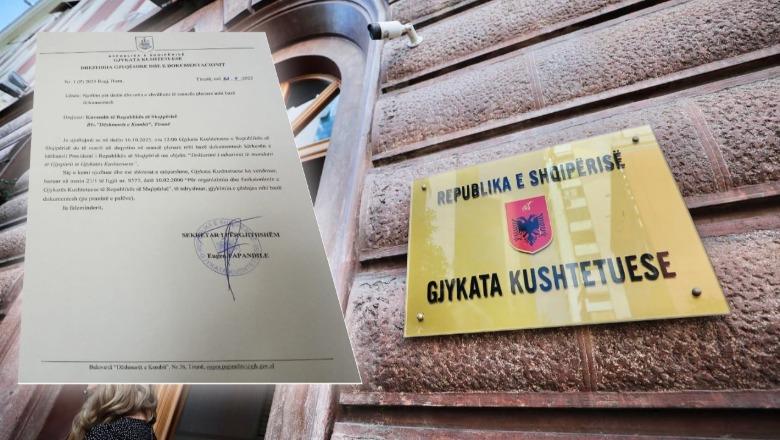 REPUBLIKA E SHQIPËRISË
GJYKATA KUSHTETUESE
DREJTORIA GJYQËSORE DHE E DOKUMENTACIONIT
Nr. 1 (P) 2025 Regj. Them.
Tiranë, më
Lënda: Njoftim për datën dhe orën e zhvillimit të seancës plenare mbi bazë
dokumentesh
Drejtuar: Kuvendit të Republikës së Shqipërisë
Blv. "Dëshmorët e Kombit", Tiranë
Ju njoftojmë se në datën 16.10.2025, ora 12:00 Gjykata Kushtetuese e Republikës së
Shqipërisë do të marrë në shqyrtim në seancë plenare mbi bazë dokumentesh kërkesën e
Presidenti i Republikës së Shqipërisë me objekt: "Deklarimi i mbarimit të mandatit
të Gjyqtarit të Gjykatës Kushtetuese".
Siç e keni njoftuar dhe me shkresat e mëparshme, Gjykata Kushtetuese ka vendosur,
bazuar në nenin 21/1 të ligjit nr. 8577, datë 10.02.2000 "Për organizimin dhe funksionimin e
Gjykatës Kushtetuese të Republikës së Shqipërisë", të ndryshuar, gjykimin e çështjes mbi bazë
dokumentesh (pa praninë e palëve).
Ju faleminderit,
SEKRETAR I PËRGJITHSHËM
Eugen PAPANDILE
Bulevardi "Dëshmorët e Kombit", Nr.26, Tiranë,
REPUBLIKA E SHQIPËRISË
GJYKATA KUSHTETUESE